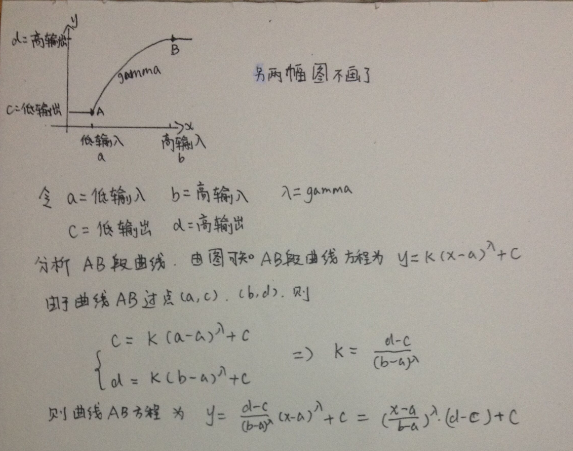 y
d=高输出
B
gamma
另两幅图不画了
c=低输出
A
x
低输入 高输入
a b
令 a=低输入 b=高输入 λ=gamma
c=低输出 d=高输出
分析AB段曲线. 由图可知AB段曲线方程为 y=k(x-a)^λ+c
由于曲线AB过点(a,c).(b,d).则
{ c=k(a-a)^λ+c
d=k(b-a)^λ+c
=> k= (d-c)/(b-a)^λ
则曲线AB方程为 y= (d-c)/(b-a)^λ (x-a)^λ+c = ((x-a)/(b-a))^λ·(d-c)+c